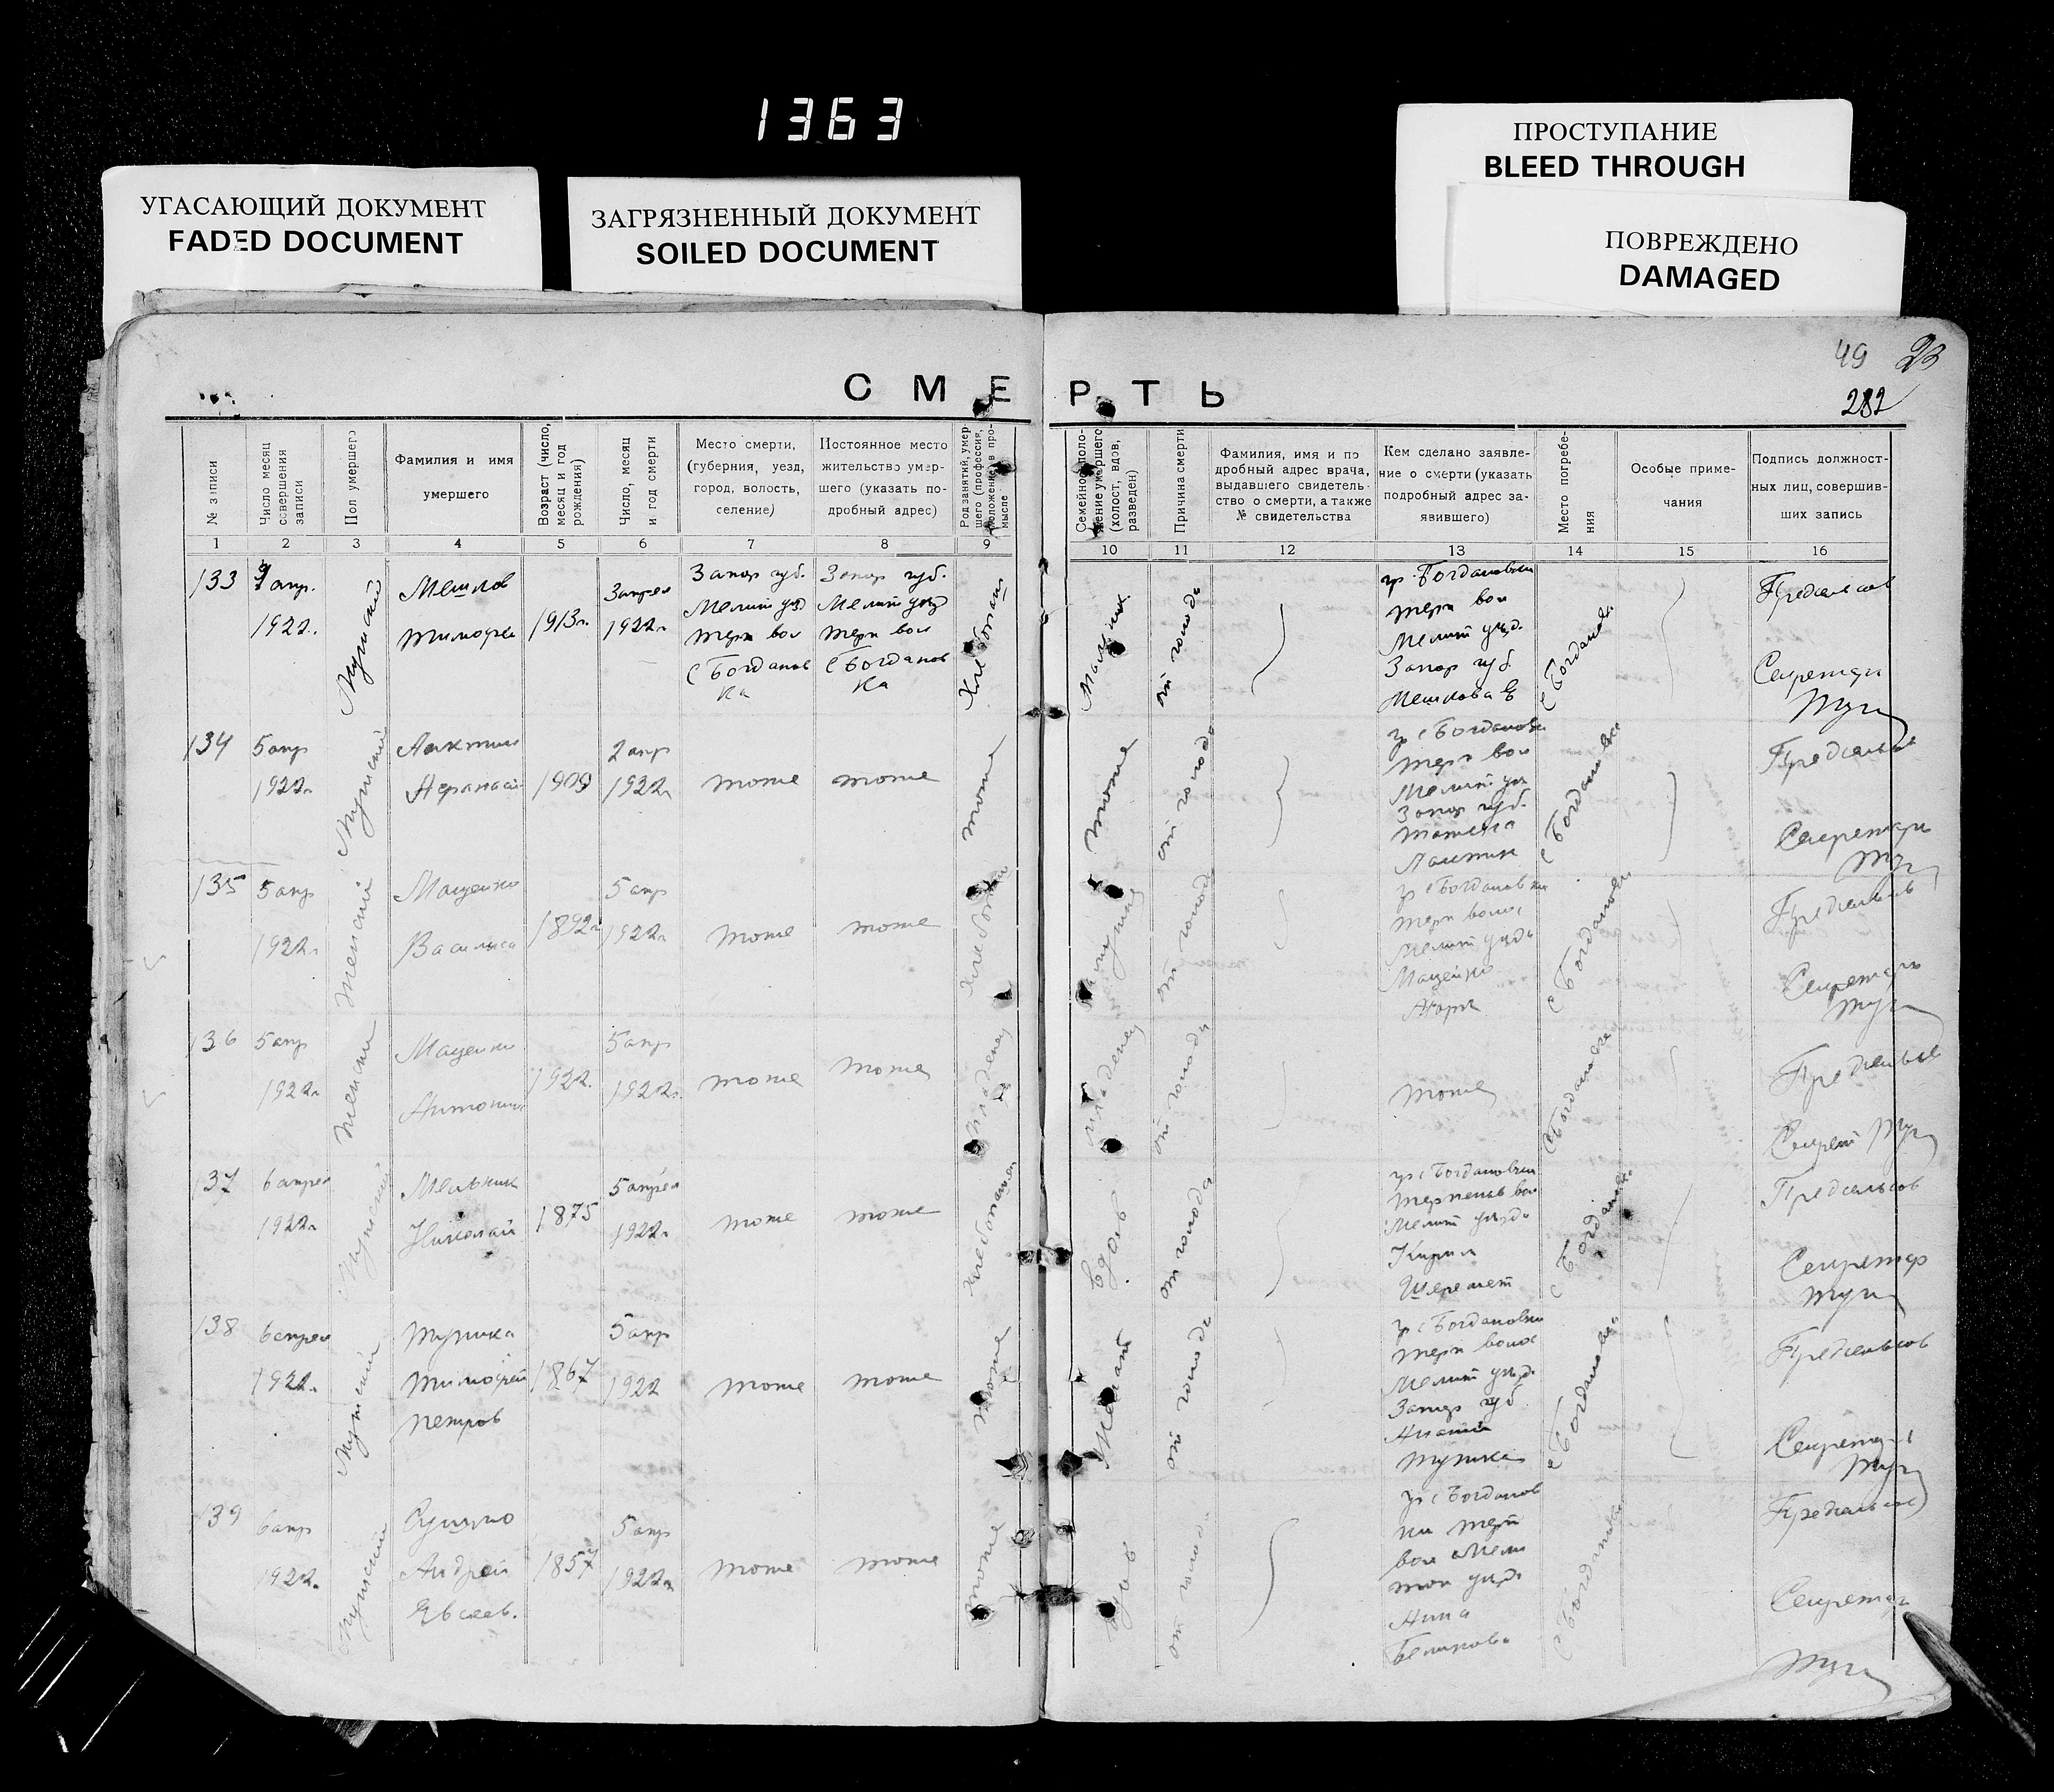 1363
УГАСАЮЩИЙ ДОКУМЕНТ
FADED DOCUMENT
ЗАГРЯЗНЕННЫЙ ДОКУМЕНТ
SOILED DOCUMENT
ПРОСТУПАНИЕ
BLEED THROUGH
ПОВРЕЖДЕНО
DAMAGED
49 23
282
СМЕРТЬ
№ записи
Число месяц
совершения
записи
Пол умершего
Фамилия и имя
умершего
Возраст (число,
месяц и год
рождения)
Число, месяц
и год смерти
Место смерти,
(губерния, уезд,
город, волость,
селение)
Постоянное место
жительство умер-
шего (указать по-
дробный адрес)
Род занятий, умер-
шего (профессия,
положение) в про-
мысле
Семейное поло-
жение умершего
(холост, вдов,
разведен)
Причина смерти
Фамилия, имя и по
дробный адрес врача,
выдавшего свидетель-
ство о смерти, а также
№ свидетельства
Кем сделано заявле-
ние о смерти (указать
подробный адрес за-
явившего)
Место погребе-
ния
Особые приме-
чания
Подпись должност-
ных лиц, совершив-
ших запись
1 2 3 4 5 6 7 8 9 10 11 12 13 14 15 16
133
апр.
1922.
Мужский
Мешков
Тимофей
1913г.
3 апрел
1922г
Запор губ.
Мелит уезд
Терп вол
с Богданов
ка
Запор губ.
Мелит уезд
Терп вол
с Богданов
ка
Хлебопаш
Мальчик
от голода
гр. Богдановки
Терп вол
Мелит уезд.
Запор губ.
Мешкова Е
с Богданов.
Предсельсов
Секретарь
134
5 апр
1922г
Мужский
Лактин
Афанасий
1909
2 апр
1922г
тоже
тоже
тоже
тоже
от голода
гр с Богдановки
Терп вол
Мелит уез
Запор губ.
Лактин
с Богдановка
Предсельсов
Секретарь
135
5 апр
1922г
Женский
Маценко
Василиса
1892г
5 апр
1922г
тоже
тоже
Хлебопаш
от голода
гр с Богдановки
Терп волос
Мелит уезда
Маценко
с Богдановка
Предсельсов
Секретарь
136
5 апр
1922г
Женски
Маценко
Антонина
1922.
5 апр
1922г.
тоже
тоже
Младенец
младенец
от голода
тоже
с Богдановка
Предсельсов
Секрет
137
6 апрел
1922г
Мужский
Мельник
Николай
1875
5 апрел
1922г
тоже
тоже
Хлебопашец
Вдов
от голода
гр с Богдановки
Терпеньев вол
Мелит уезда
Кирил
Шеремет
с Богдановка
Предсельсов
Секретар
138
6 апрел
1922.
Мужский
Турика
Тимофей
Петров
1867
5 апр
1922
тоже
тоже
тоже
Женат
от голода
гр с Богдановки
Терп волос
Мелит уезд.
Запор губ
Турика
с Богдановка
Предсельсов
Секретарь
139
6 апр
1922г.
Мужский
Сущко
Андрей
Евсеев.
1857
5 апр
1922г
тоже
тоже
тоже
вдов
от голод
гр с Богданов
ки Терп
вол Мели
топ уезд.
Анна
с Богдановка
Предсельсов
Секретарь